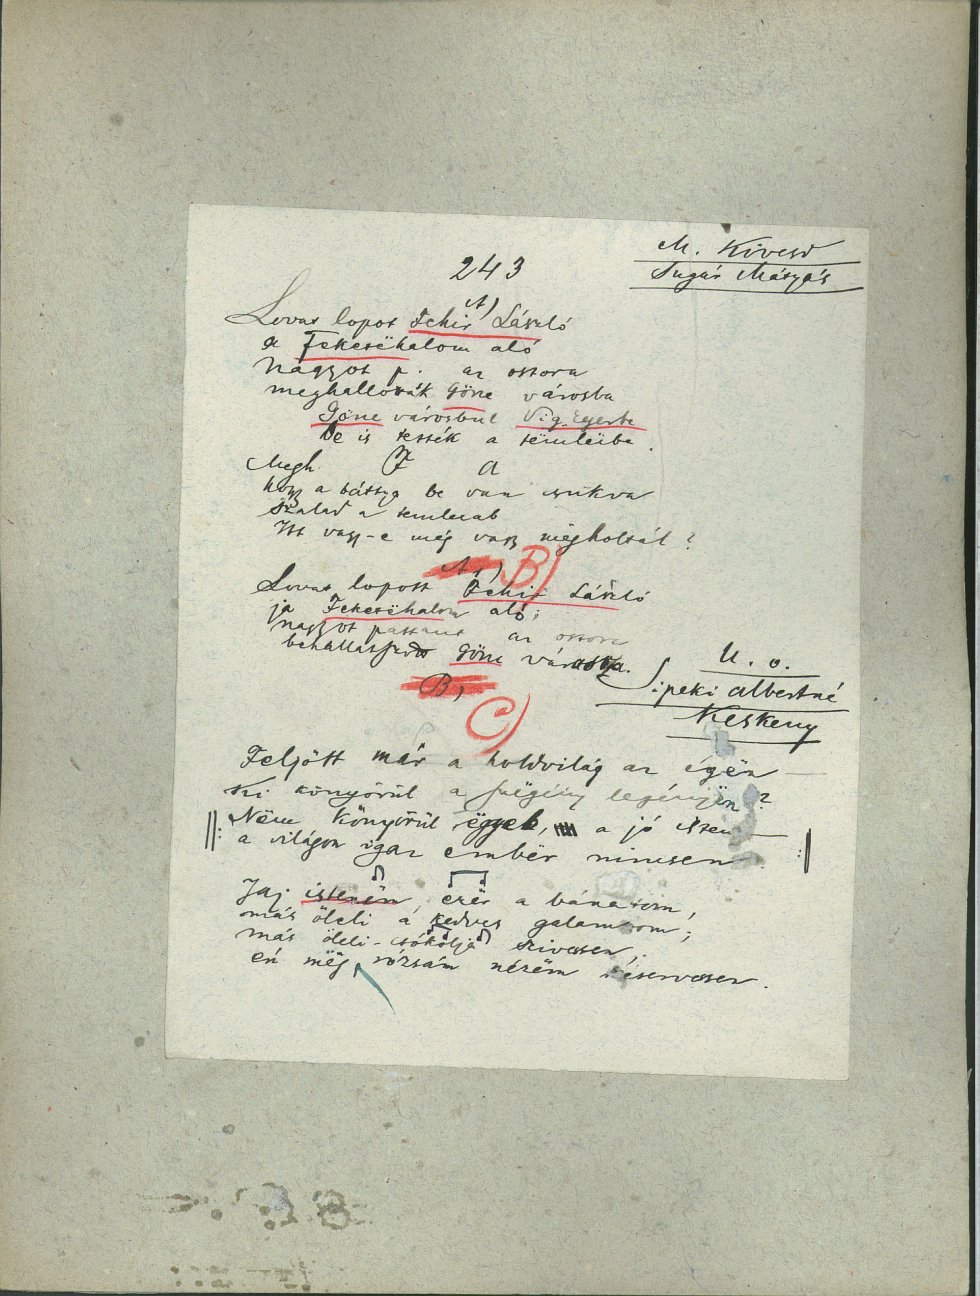 243
M. Kövesd
Sugár Mátyás
A)
Lovat lopot Fehir László
a Feketëhalom aló
Nagyot p. az ostora
meghallották Gönc városba
Gönc városbul Vig
be is tették a tëmlëcbe
Megh. F a
hogy a báttya be van csukva
Szalad a
Itt vagy-e még vagy mëgholtál?
A,) B)
Lovat lopott Fehir László
ja Feketëhalom aló;
nagyot pattant az ostora
Gönc városba.
U. o.
Sipeki Albertné
Keskeny
B, C)
Feljött már a holdvilág az égën
Ki könyörül a szëgény legényën?
Nëm könyörül ëgyeb, a jó Isten
a világon igaz embër nincsen
Jaj istenëm, ezër a bánatom,
más öleli a kedves galambom;
más öleli-csókolja szivesen,
én mëg, rózsám nézëm késervesen.